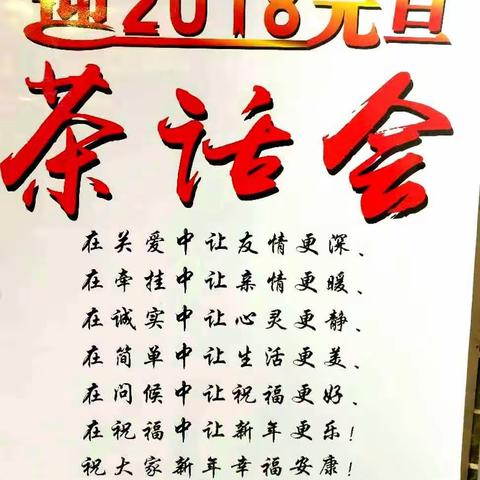 迎2018元旦
茶话会
在关爱中让友情更深、
在牵挂中让亲情更暖、
在诚实中让心灵更静、
在简单中让生活更美、
在问候中让祝福更好、
在祝福中让新年更乐!
祝大家新年幸福安康!